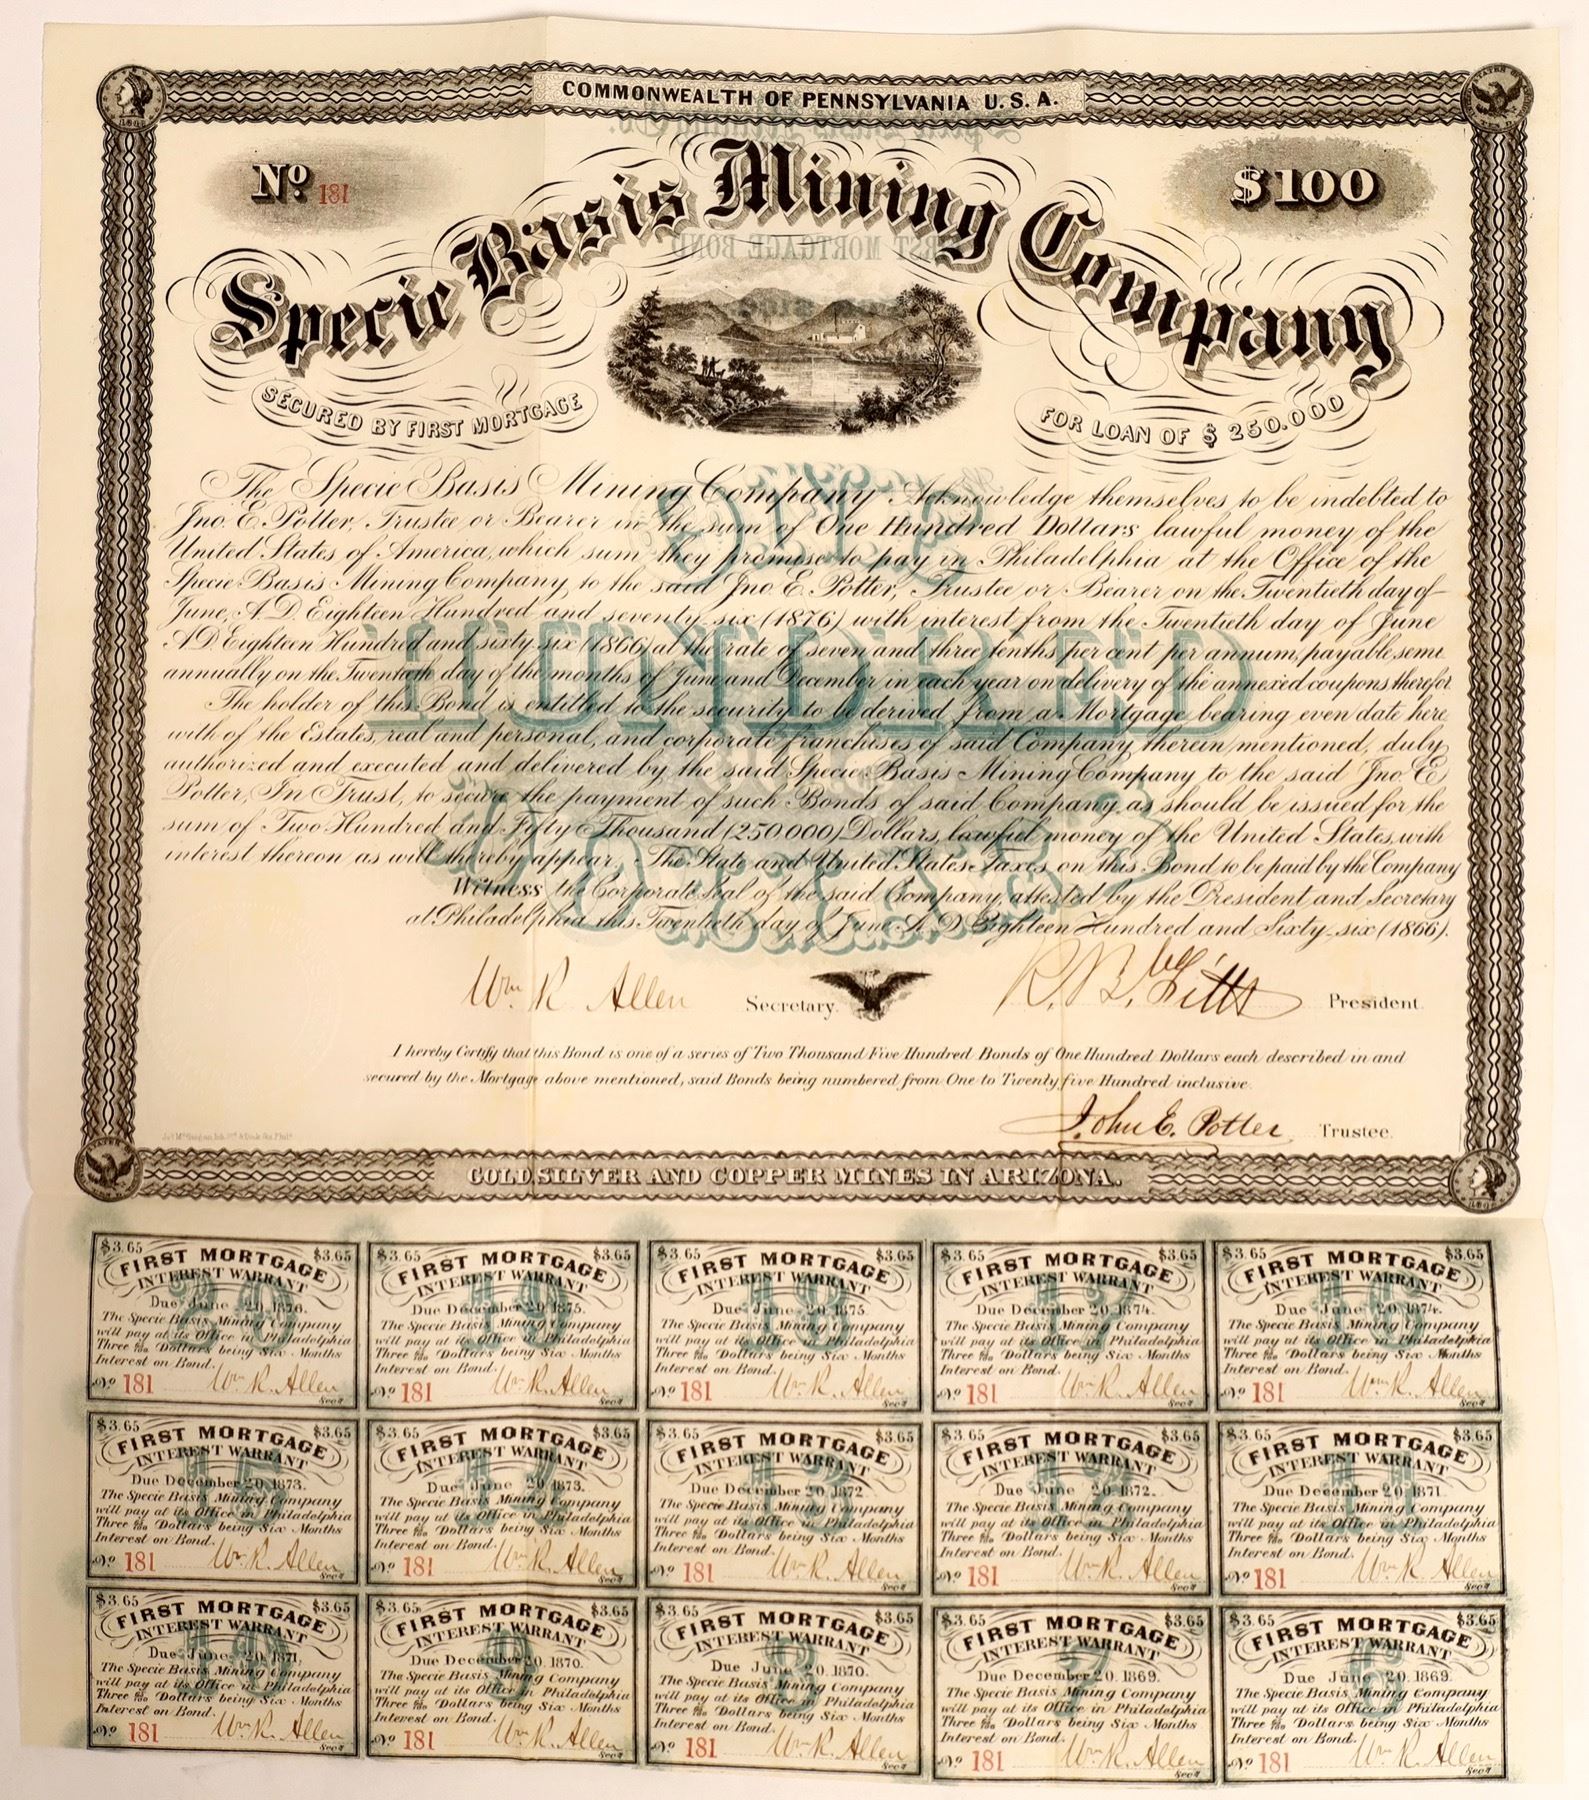 COMMONWEALTH OF PENNSYLVANIA U.S.A.
No 181
$100
Specie Basis Mining Company
SECURED BY FIRST MORTGAGE
FOR LOAN OF $ 250.000
The Specie Basis Mining Company Acknowledge themselves to be indebted to
Jno. E. Potter, Trustee or Bearer in the sum of One Hundred Dollars lawful money of the
United States of America, which sum they promise to pay in Philadelphia at the Office of the
Specie Basis Mining Company, to the said Jno. E. Potter, Trustee or Bearer on the Twentieth day of
June, A.D. Eighteen Hundred and seventy six (1876) with interest from the Twentieth day of June
A.D. Eighteen Hundred and sixty six (1866) at the rate of seven and three tenths per cent per annum, payable semi
annually on the Twentieth day of the months of June and December in each year on delivery of the annexed coupons therefor
The holder of this Bond is entitled to the security to be derived from a Mortgage bearing even date here
with of the Estates, real and personal, and corporate franchises of said Company therein mentioned, duly
authorized and executed and delivered by the said Specie Basis Mining Company to the said Jno. E.
Potter, In Trust, to secure the payment of such Bonds of said Company as should be issued for the
sum of Two Hundred and Fifty Thousand (250.000) Dollars, lawful money of the United States, with
interest thereon as will thereby appear. The State and United States Taxes on this Bond to be paid by the Company
Witness the Corporate Seal of the said Company, attested by the President and Secretary
at Philadelphia this Twentieth day of June A.D. Eighteen Hundred and Sixty-six (1866).
Wm R Allen Secretary.
President.
I hereby Certify that this Bond is one of a series of Two Thousand Five Hundred Bonds of One Hundred Dollars each described in and
secured by the Mortgage above mentioned, said Bonds being numbered from One to Twenty five Hundred inclusive.
John E. Potter, Trustee.
GOLD, SILVER AND COPPER MINES IN ARIZONA.
$3.65 $3.65
FIRST MORTGAGE
INTEREST WARRANT
20
Due June 20 1876.
The Specie Basis Mining Company
will pay at its Office in Philadelphia
Three 65/100 Dollars being Six Months
Interest on Bond.
No 181 Wm R. Allen
Secy
$3.65 $3.65
FIRST MORTGAGE
INTEREST WARRANT
19
Due December 20 1875.
The Specie Basis Mining Company
will pay at its Office in Philadelphia
Three 65/100 Dollars being Six Months
Interest on Bond.
No 181 Wm R. Allen
Secy
$3.65 $3.65
FIRST MORTGAGE
INTEREST WARRANT
18
Due June 20 1875.
The Specie Basis Mining Company
will pay at its Office in Philadelphia
Three 65/100 Dollars being Six Months
Interest on Bond.
No 181 Wm R. Allen
Secy
$3.65 $3.65
FIRST MORTGAGE
INTEREST WARRANT
17
Due December 20 1874.
The Specie Basis Mining Company
will pay at its Office in Philadelphia
Three 65/100 Dollars being Six Months
Interest on Bond.
No 181 Wm R. Allen
Secy
$3.65 $3.65
FIRST MORTGAGE
INTEREST WARRANT
16
Due June 20 1874.
The Specie Basis Mining Company
will pay at its Office in Philadelphia
Three 65/100 Dollars being Six Months
Interest on Bond.
No 181 Wm R. Allen
Secy
$3.65 $3.65
FIRST MORTGAGE
INTEREST WARRANT
15
Due December 20 1873.
The Specie Basis Mining Company
will pay at its Office in Philadelphia
Three 65/100 Dollars being Six Months
Interest on Bond.
No 181 Wm R. Allen
Secy
$3.65 $3.65
FIRST MORTGAGE
INTEREST WARRANT
Due June 20 1873.
The Specie Basis Mining Company
will pay at its Office in Philadelphia
Three 65/100 Dollars being Six Months
Interest on Bond.
No 181 Wm R. Allen
Secy
$3.65 $3.65
FIRST MORTGAGE
INTEREST WARRANT
13
Due December 20 1872
The Specie Basis Mining Company
will pay at its Office in Philadelphia
Three 65/100 Dollars being Six Months
Interest on Bond.
No 181 Wm R. Allen
Secy
$3.65 $3.65
FIRST MORTGAGE
INTEREST WARRANT
12
Due June 20 1872.
The Specie Basis Mining Company
will pay at its Office in Philadelphia
Three 65/100 Dollars being Six Months
Interest on Bond.
No 181 Wm R. Allen
Secy
$3.65 $3.65
FIRST MORTGAGE
INTEREST WARRANT
11
Due December 20 1871.
The Specie Basis Mining Company
will pay at its Office in Philadelphia
Three 65/100 Dollars being Six Months
Interest on Bond.
No 181 Wm R. Allen
Secy
$3.65 $3.65
FIRST MORTGAGE
INTEREST WARRANT
10
Due June 20 1871.
The Specie Basis Mining Company
will pay at its Office in Philadelphia
Three 65/100 Dollars being Six Months
Interest on Bond.
No 181 Wm R. Allen
Secy
$3.65 $3.65
FIRST MORTGAGE
INTEREST WARRANT
9
Due December 20 1870.
The Specie Basis Mining Company
will pay at its Office in Philadelphia
Three 65/100 Dollars being Six Months
Interest on Bond.
No 181 Wm R. Allen
Secy
$3.65 $3.65
FIRST MORTGAGE
INTEREST WARRANT
8
Due June 20 1870.
The Specie Basis Mining Company
will pay at its Office in Philadelphia
Three 65/100 Dollars being Six Months
Interest on Bond.
No 181 Wm R. Allen
Secy
$3.65 $3.65
FIRST MORTGAGE
INTEREST WARRANT
7
Due December 20 1869.
The Specie Basis Mining Company
will pay at its Office in Philadelphia
Three 65/100 Dollars being Six Months
Interest on Bond.
No 181 Wm R. Allen
Secy
$3.65 $3.65
FIRST MORTGAGE
INTEREST WARRANT
6
Due June 20 1869.
The Specie Basis Mining Company
will pay at its Office in Philadelphia
Three 65/100 Dollars being Six Months
Interest on Bond.
No 181 Wm R. Allen
Secy